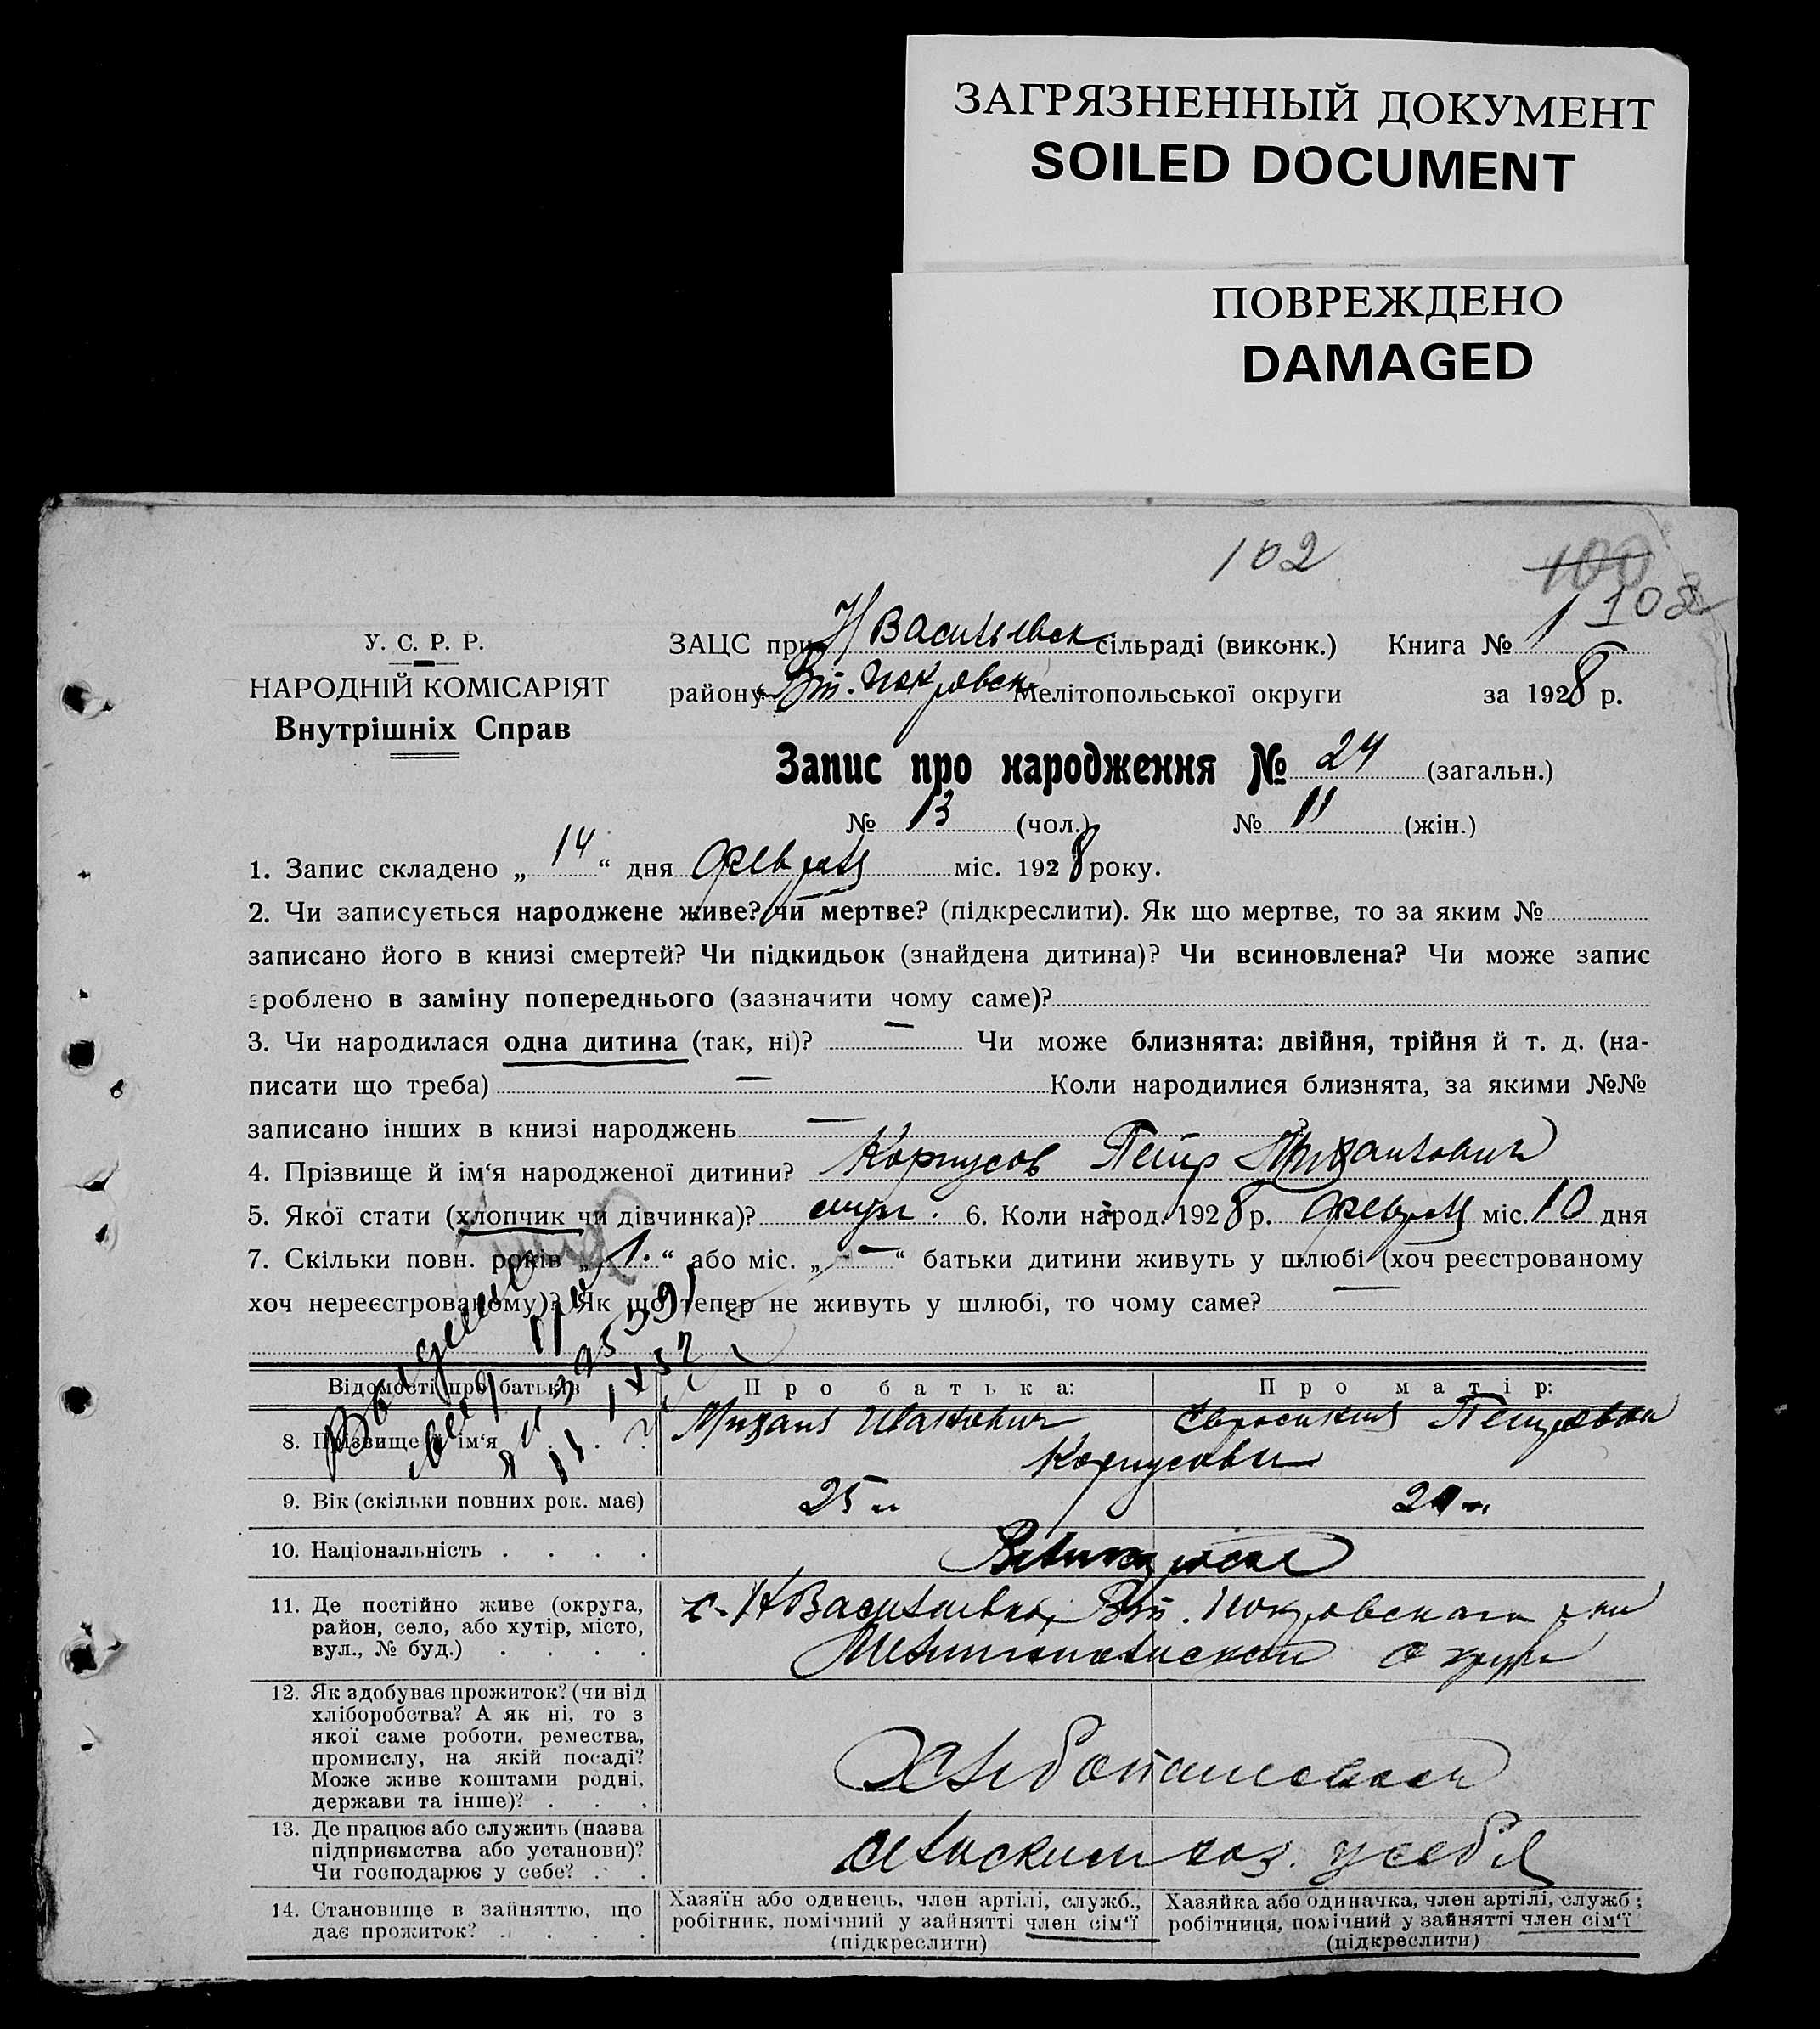 ЗАГРЯЗНЕННЫЙ ДОКУМЕНТ
SOILED DOCUMENT
ПОВРЕЖДЕНО
DAMAGED
102
100
102
У. С. Р. Р.
НАРОДНІЙ КОМІСАРІЯТ
Внутрішніх Справ
ЗАЦС при Н Васильевск сільраді (виконк.) Книга № 1
району Вт. Покровск Мелітопольської округи за 1928 р.
Запис про народження № 24 (загальн.)
№ 13 (чол.) № 11 (жін.)
1. Запис складено „ 14 “ дня февраля міс. 1928 року.
2. Чи записується народжене живе? чи мертве? (підкреслити). Як що мертве, то за яким №
записано його в книзі смертей? Чи підкидьок (знайдена дитина)? Чи всиновлена? Чи може запис
зроблено в заміну попереднього (зазначити чому саме)?
3. Чи народилася одна дитина (так, ні)? — Чи може близнята: двійня, трійня й т. д. (на-
писати що треба) — Коли народилися близнята, за якими №№
записано інших в книзі народжень —
4. Прізвище й ім‘я народженої дитини? Корпусов Петр Михайлович
5. Якої стати (хлопчик чи дівчинка)? 6. Коли народ. 1928 р. февраля міс. 10 дня
7. Скільки повн. років „ 1. “ або міс. „ — “ батьки дитини живуть у шлюбі (хоч реєстрованому
хоч нереєстрованому)? Як що тепер не живуть у шлюбі, то чому саме? —
Відомості про батьків Про батька: Про матір:
8. Прізвище й ім‘я . . . Михаил Иванович Евросиния Петровна
Корпусовы
9. Вік (скільки повних рок. має) 25 л.
10. Національність . . . . Великоросы
11. Де постійно живе (округа,
район, село, або хутір, місто,
вул., № буд.) . . . .
с. Н Васильевка, Вт. Покровского р-на
Мелитопольской округи
12. Як здобуває прожиток? (чи від
хліборобства? А як ні, то з
якої саме роботи, ремества,
промислу, на якій посаді?
Може живе коштами родні,
держави та інше)? . . .
Хлебопашеством
13. Де працює або служить (назва
підприємства або установи)?
Чи господарює у себе? . .
сельским хоз. у себя
14. Становище в зайняттю, що
дає прожиток? . . . .
Хазяїн або одинець, член артілі, служб.,
робітник, помічний у зайнятті член сім‘ї
(підкреслити)
Хазяйка або одиначка, член артілі, служб.;
робітниця, помічний у зайнятті член сім‘ї
(підкреслити)